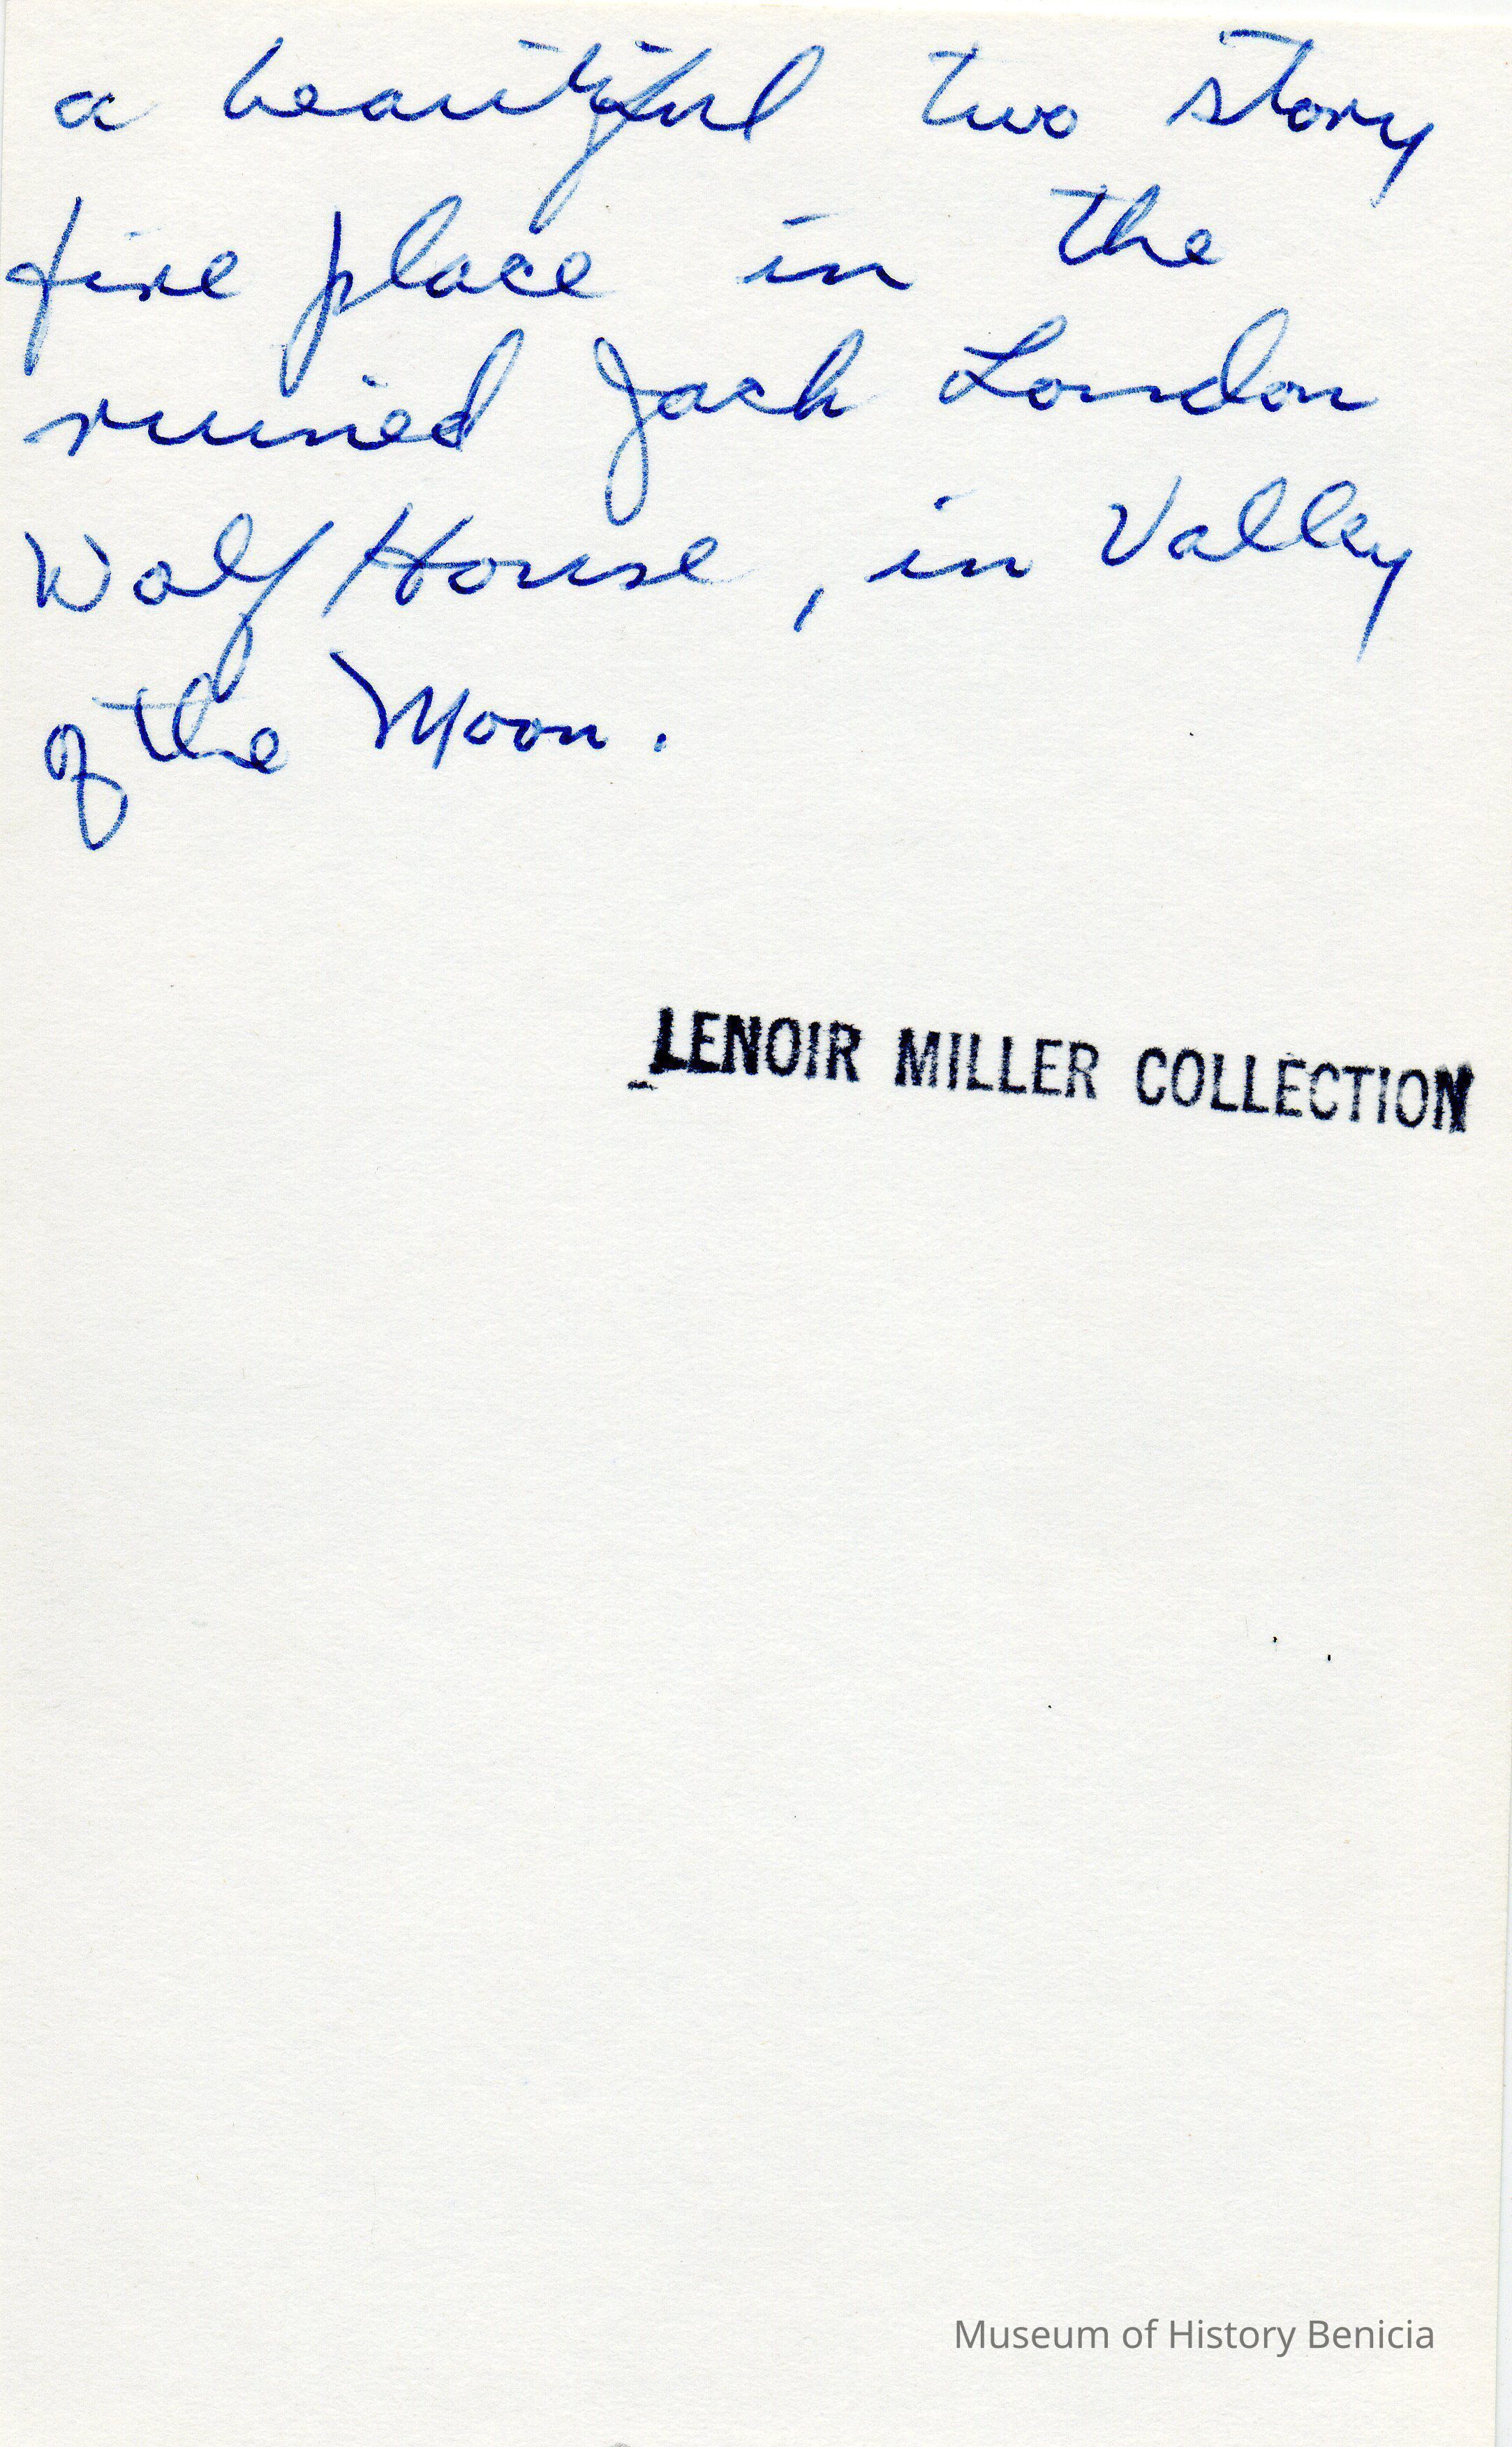 a beautiful two story
fire place in the
ruined Jack London
Wolf House, in Valley
of the Moon.
LENOIR MILLER COLLECTION
Museum of History Benicia